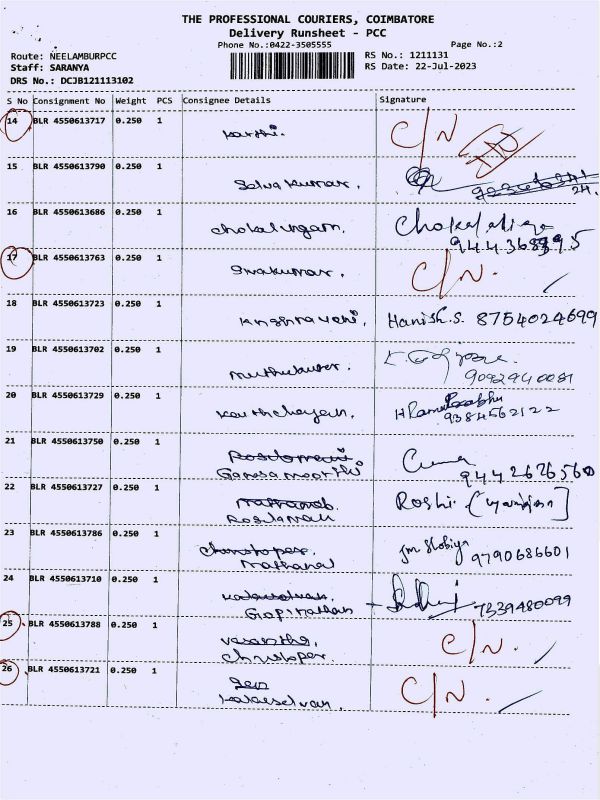 THE PROFESSIONAL COURIERS, COIMBATORE
Delivery Runsheet - PCC
Phone No.:0422-3505555 Page No.:2
Route: NEELAMBURPCC RS No.: 1211131
Staff: SARANYA RS Date: 22-Jul-2023
DRS No.: DCJB121113102
S No Consignment No Weight PCS Consignee Details Signature
14 BLR 4550613717 0.250 1 C/N
Karthi.
15 BLR 4550613790 0.250 1
Selvakumar. 24.
16 BLR 4550613686 0.250 1
chokalingam.
17 BLR 4550613763 0.250 1 C/N.
Sivakumar.
18 BLR 4550613723 0.250 1
Hanish.S. 8754024699
19 BLR 4550613702 0.250 1
9092940081
20 BLR 4550613729 0.250 1
9384562122
21 BLR 4550613750 0.250 1
Ganesamoorthi 9442676560
22 BLR 4550613727 0.250 1 Roshi.
23 BLR 4550613786 0.250 1
christoper. 9790686601
Nathanal
24 BLR 4550613710 0.250 1
Gopinathan 7339480099
25 BLR 4550613788 0.250 1 C/N.
vasantha.
christoper.
26 BLR 4550613721 0.250 1 C/N.
Kalaiselvan.